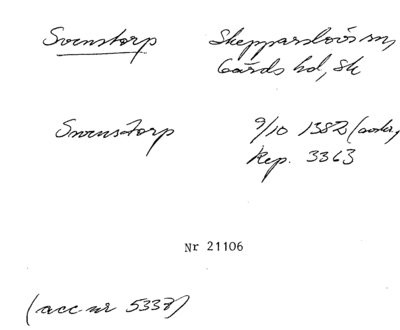 Svenstorp Skepparslövs sn,
Gärds hd, Sk
Swenstorp 9/10 1382 (avskr,
Rep. 3363
Nr 21106
(acc nr 5337)